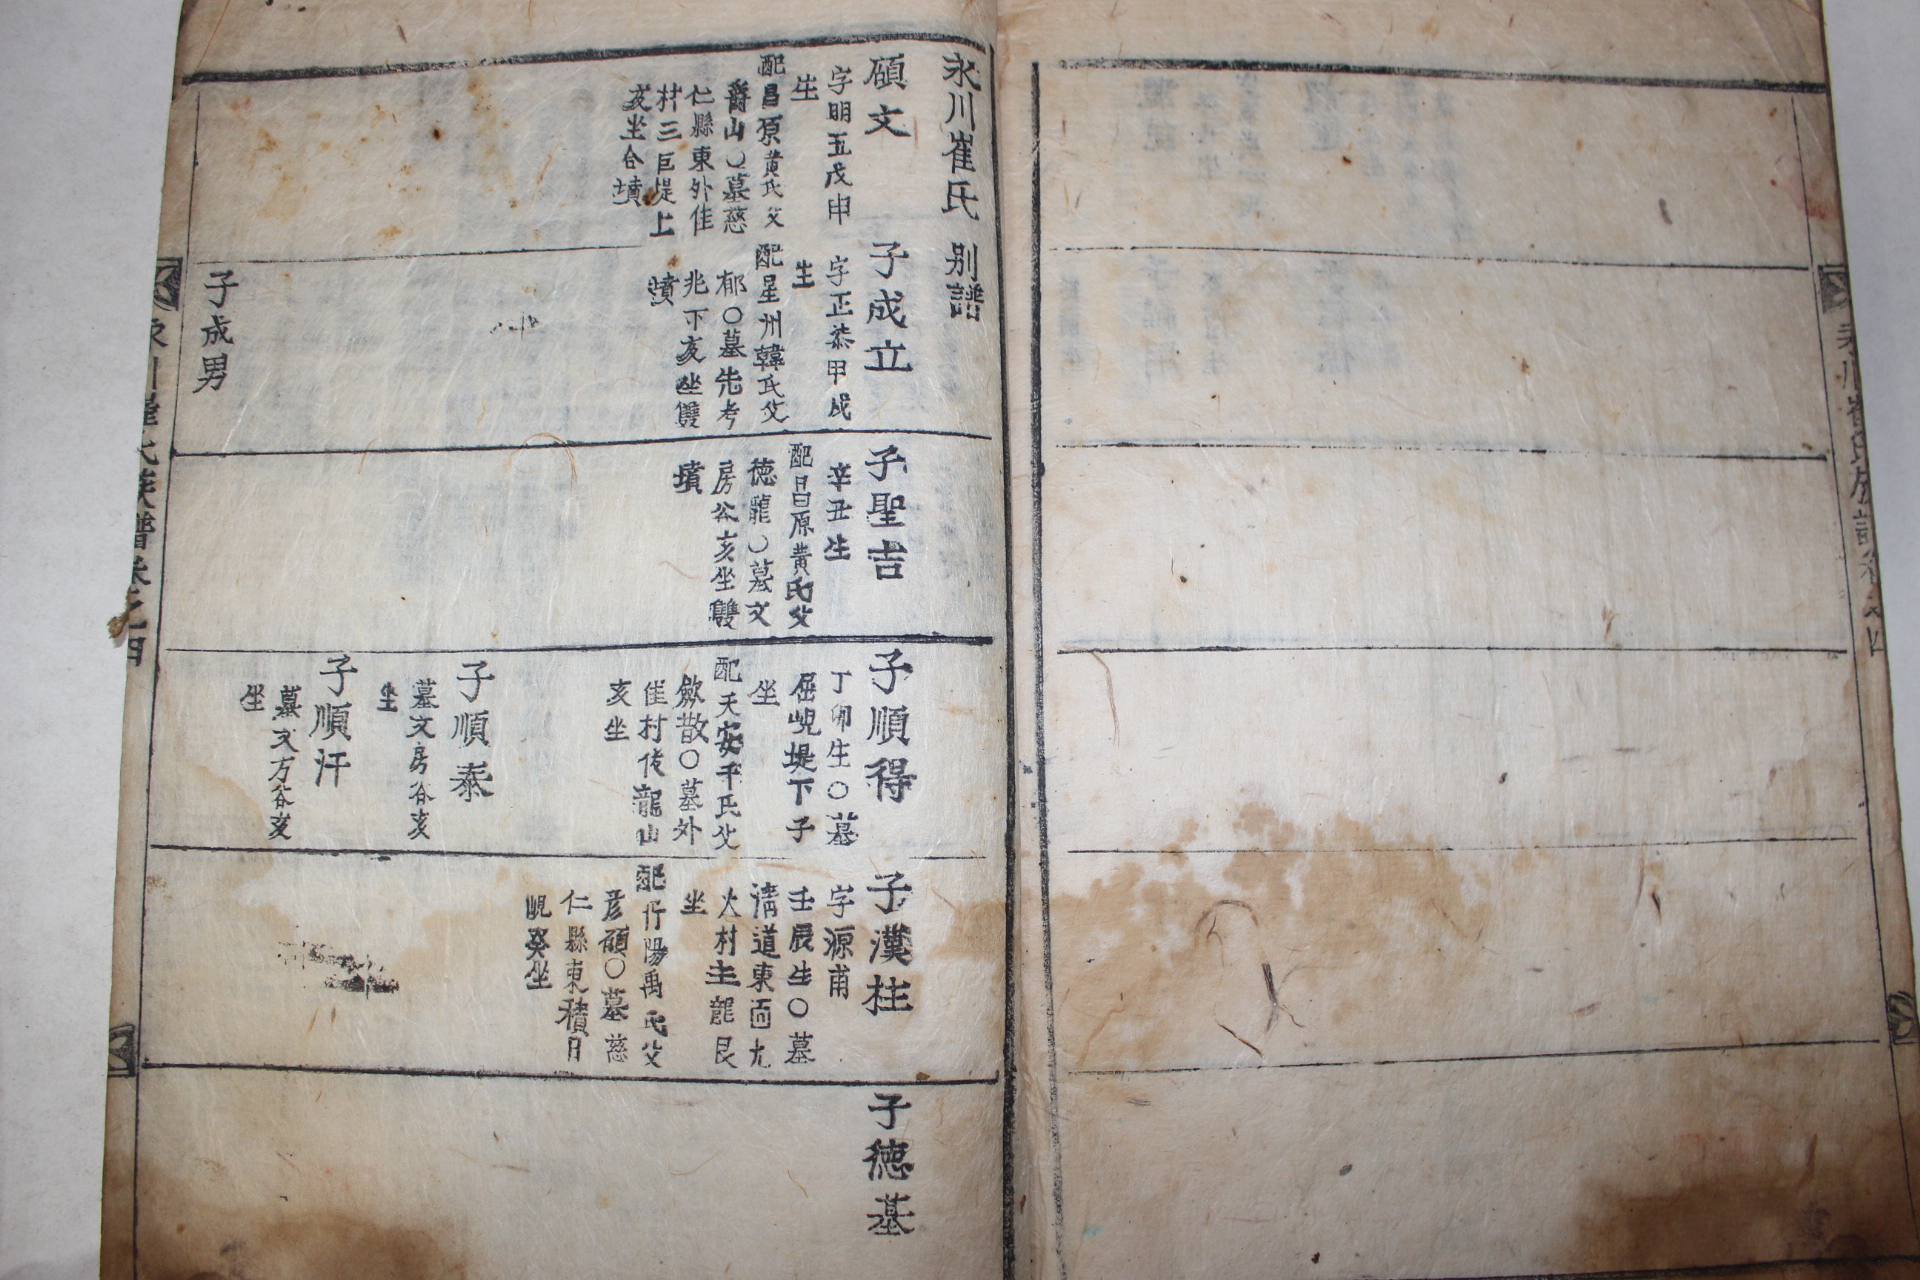 永川崔氏 別譜
碩文
字明五戊申
生
配昌原黃氏父
爵山○墓慈
仁縣東外佳
村三巨堤上
亥坐合墳
子成立
字正恭甲戌
生
配星州韓氏父
郁○墓先考
兆下亥坐雙
墳
子成男
子聖吉
辛丑生
配昌原黃氏父
德龍○墓文
房谷亥坐雙
墳
子順得
丁卯生○墓
屈峴堤下子
坐
配天安千氏父
歛散○墓外
佳村後龍山
亥坐
子順泰
墓文房谷亥
坐
子順汗
墓文方谷亥
坐
子漢柱
字源甫
壬辰生○墓
淸道東面九
火村主龍艮
坐
配丹陽禹氏父
彦碩○墓慈
仁縣東積日
峴癸坐
子德基
永川崔氏族譜卷之四
永川崔氏族譜卷之四